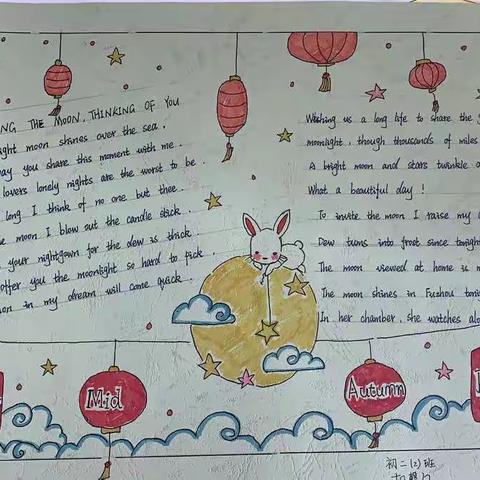 NG THE MOON, THINKING OF YOU
ight moon shines over the sea.
ay you share this moment with me
lovers lonely nights are the worst to be.
long I think of no one but thee
e moon I blow out the candle stick.
your nightgown for the dew is thick
offer you the moonlight so hard to pick.
on in my dream will come quick
Wishing us a long life to share the
moonlight, though thousands of miles
A bright moon and stars twinkle a
What a beautiful day!
To invite the moon I raise my
Dew turns into frost since tonigh
The moon viewed at home is m
The moon shines in Fuzhou toni
In her chamber, she watches alo
Mid
Autumn
初二(2)班